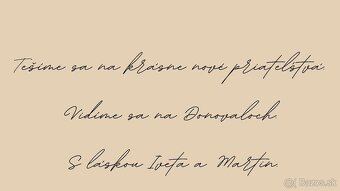 Tešíme sa na krásne nové priateľstvá.
Vidíme sa na Donovaloch.
S láskou Iveta a Martin
Bazos.sk